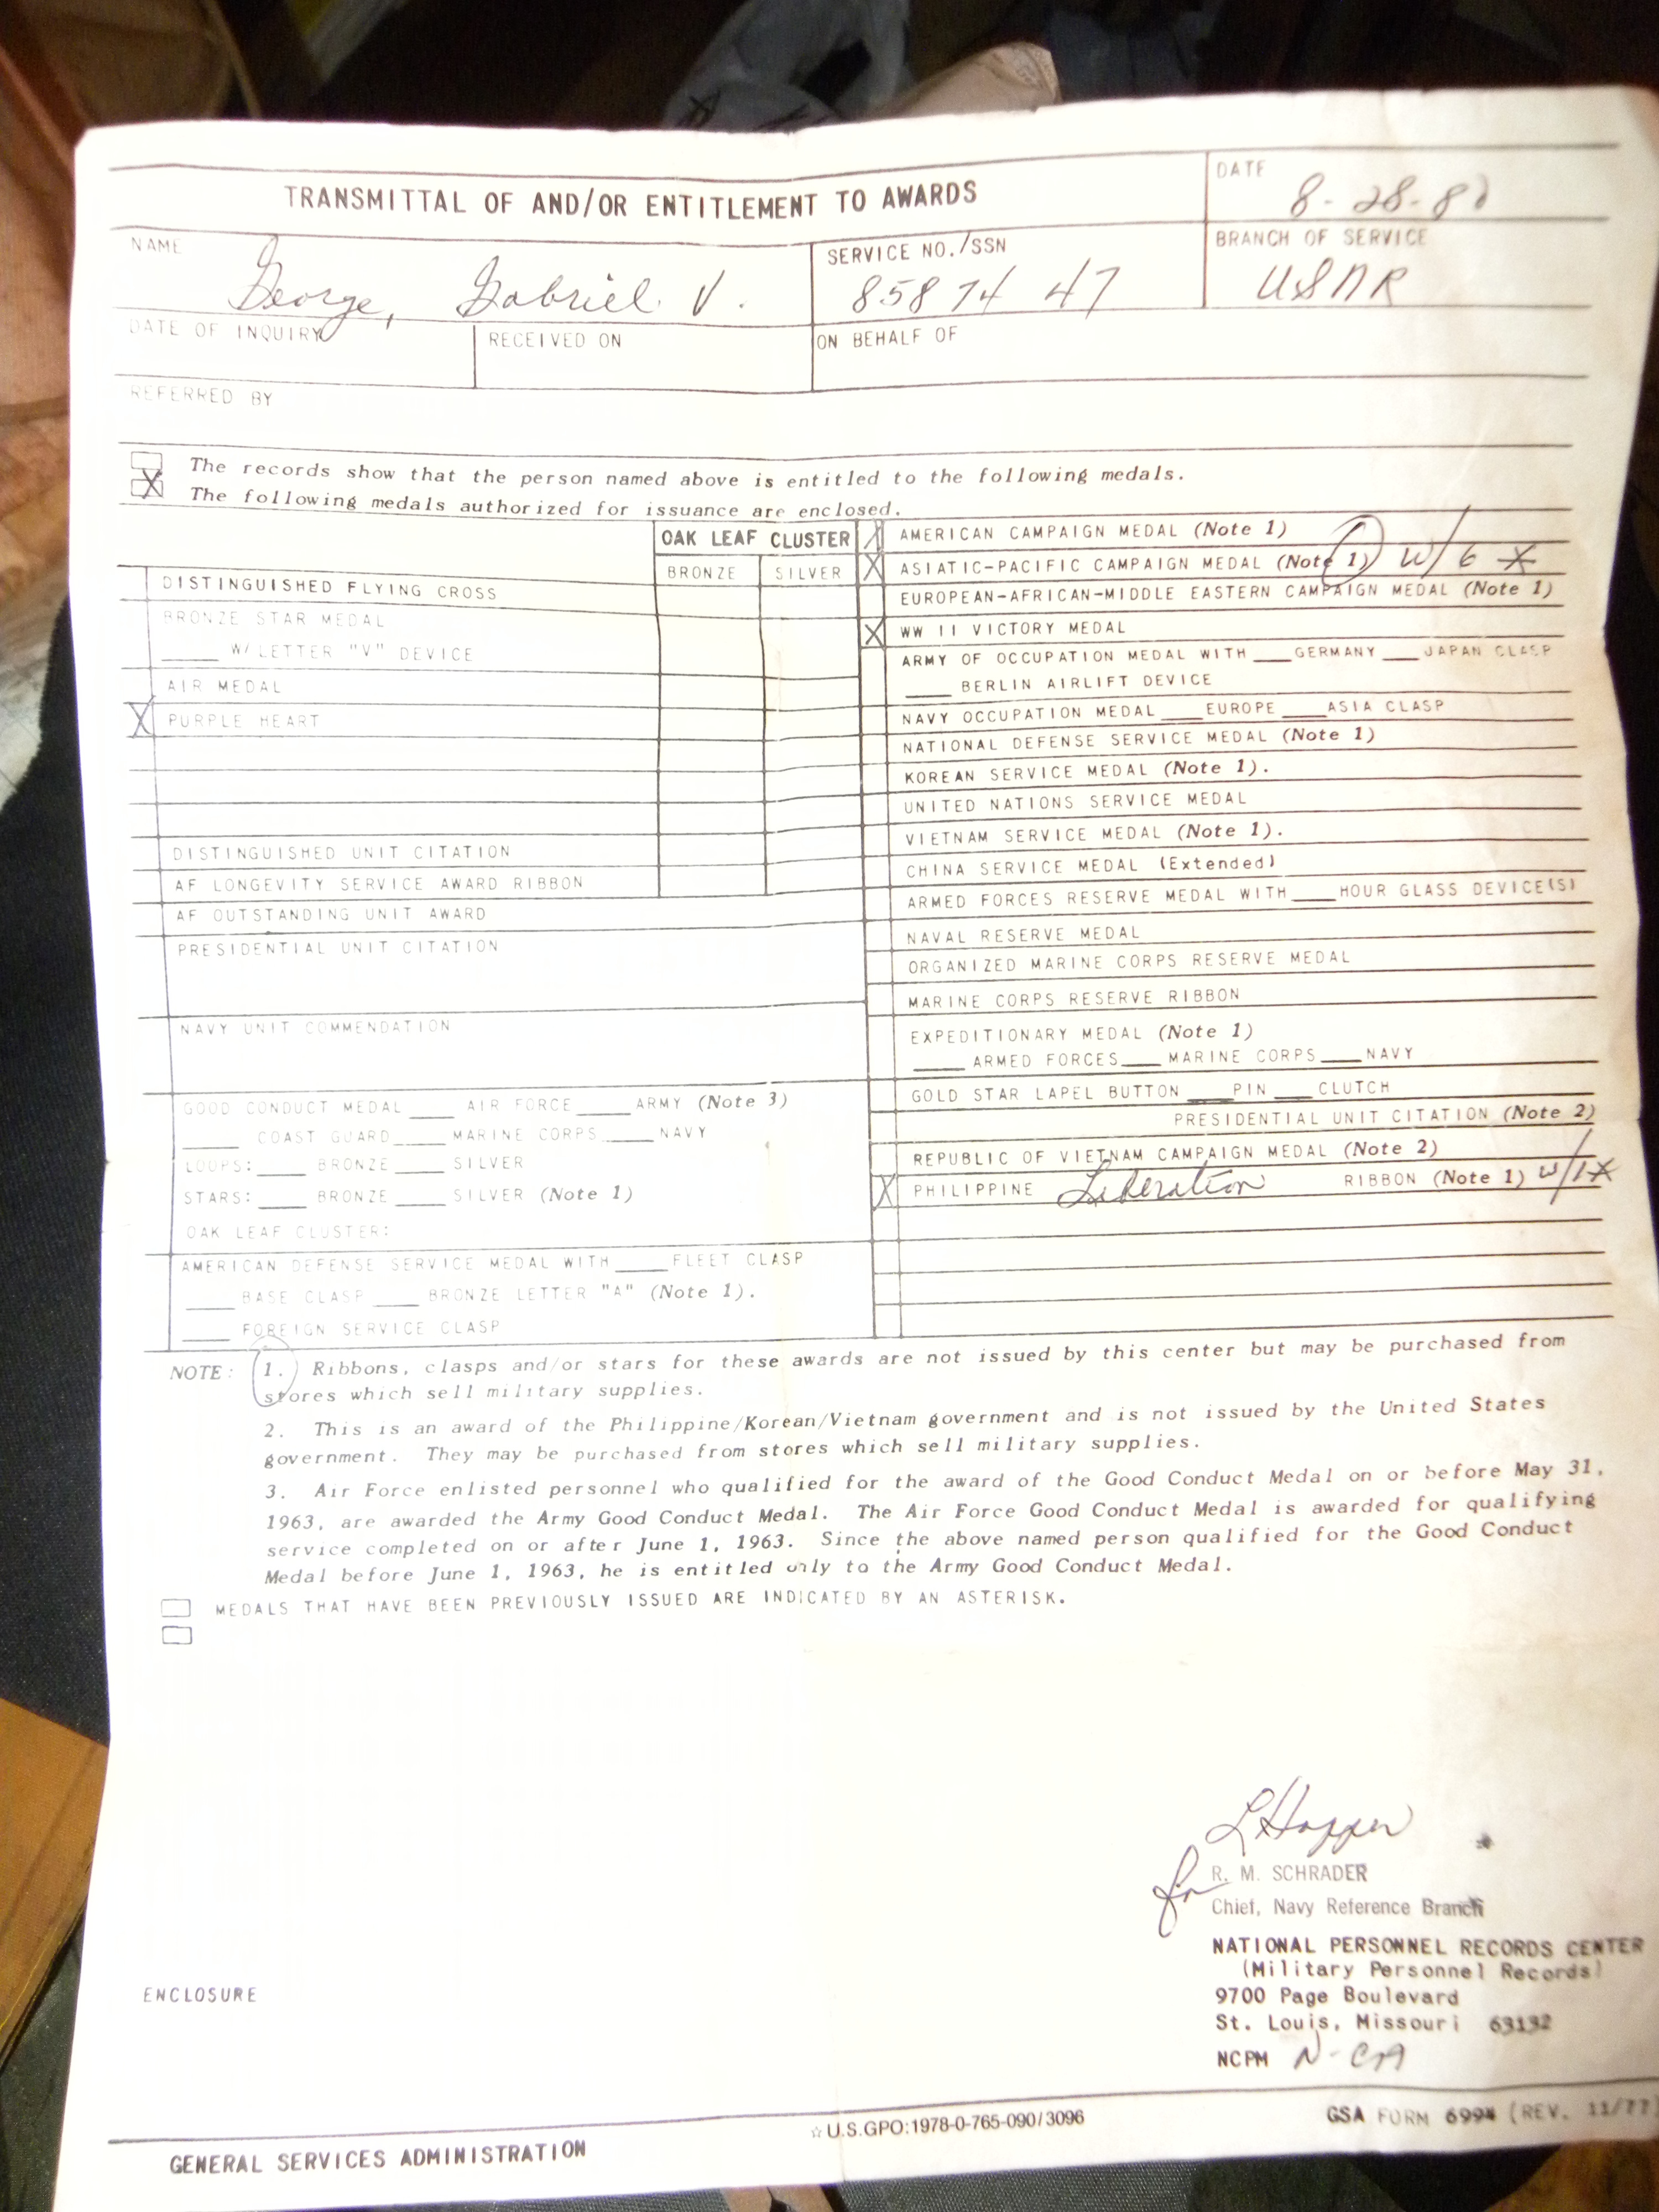 TRANSMITTAL OF AND/OR ENTITLEMENT TO AWARDS
DATE
8-28-80
NAME
George, Gabriel V.
SERVICE NO./SSN
858 74 47
BRANCH OF SERVICE
USNR
DATE OF INQUIRY
RECEIVED ON
ON BEHALF OF
REFERRED BY
The records show that the person named above is entitled to the following medals.
X The following medals authorized for issuance are enclosed.
OAK LEAF CLUSTER
BRONZE SILVER
DISTINGUISHED FLYING CROSS
BRONZE STAR MEDAL
____ W/LETTER "V" DEVICE
AIR MEDAL
X PURPLE HEART
DISTINGUISHED UNIT CITATION
AF LONGEVITY SERVICE AWARD RIBBON
AF OUTSTANDING UNIT AWARD
PRESIDENTIAL UNIT CITATION
NAVY UNIT COMMENDATION
GOOD CONDUCT MEDAL ____ AIR FORCE ____ ARMY (Note 3)
____ COAST GUARD ____ MARINE CORPS ____ NAVY
LOOPS: ____ BRONZE ____ SILVER
STARS: ____ BRONZE ____ SILVER (Note 1)
OAK LEAF CLUSTER:
AMERICAN DEFENSE SERVICE MEDAL WITH ____ FLEET CLASP
____ BASE CLASP ____ BRONZE LETTER "A" (Note 1).
____ FOREIGN SERVICE CLASP
X AMERICAN CAMPAIGN MEDAL (Note 1)
X ASIATIC-PACIFIC CAMPAIGN MEDAL (Note 1) W/6 X
EUROPEAN-AFRICAN-MIDDLE EASTERN CAMPAIGN MEDAL (Note 1)
X WW II VICTORY MEDAL
ARMY OF OCCUPATION MEDAL WITH ___ GERMANY ___ JAPAN CLASP
____ BERLIN AIRLIFT DEVICE
NAVY OCCUPATION MEDAL ___ EUROPE ___ ASIA CLASP
NATIONAL DEFENSE SERVICE MEDAL (Note 1)
KOREAN SERVICE MEDAL (Note 1).
UNITED NATIONS SERVICE MEDAL
VIETNAM SERVICE MEDAL (Note 1).
CHINA SERVICE MEDAL (Extended)
ARMED FORCES RESERVE MEDAL WITH ___ HOUR GLASS DEVICE(S)
NAVAL RESERVE MEDAL
ORGANIZED MARINE CORPS RESERVE MEDAL
MARINE CORPS RESERVE RIBBON
EXPEDITIONARY MEDAL (Note 1)
____ ARMED FORCES ___ MARINE CORPS ___ NAVY
GOLD STAR LAPEL BUTTON ___ PIN ___ CLUTCH
PRESIDENTIAL UNIT CITATION (Note 2)
REPUBLIC OF VIETNAM CAMPAIGN MEDAL (Note 2)
X PHILIPPINE Liberation RIBBON (Note 1) w/1X
NOTE: 1. Ribbons, clasps and/or stars for these awards are not issued by this center but may be purchased from
stores which sell military supplies.
2. This is an award of the Philippine/Korean/Vietnam government and is not issued by the United States
government. They may be purchased from stores which sell military supplies.
3. Air Force enlisted personnel who qualified for the award of the Good Conduct Medal on or before May 31,
1963, are awarded the Army Good Conduct Medal. The Air Force Good Conduct Medal is awarded for qualifying
service completed on or after June 1, 1963. Since the above named person qualified for the Good Conduct
Medal before June 1, 1963, he is entitled only to the Army Good Conduct Medal.
MEDALS THAT HAVE BEEN PREVIOUSLY ISSUED ARE INDICATED BY AN ASTERISK.
L Hopper
for R. M. SCHRADER
Chief, Navy Reference Branch
NATIONAL PERSONNEL RECORDS CENTER
(Military Personnel Records)
9700 Page Boulevard
St. Louis, Missouri 63132
NCPM
ENCLOSURE
☆ U.S.GPO:1978-0-765-090/3096
GSA FORM 6994 (REV. 11/77)
GENERAL SERVICES ADMINISTRATION